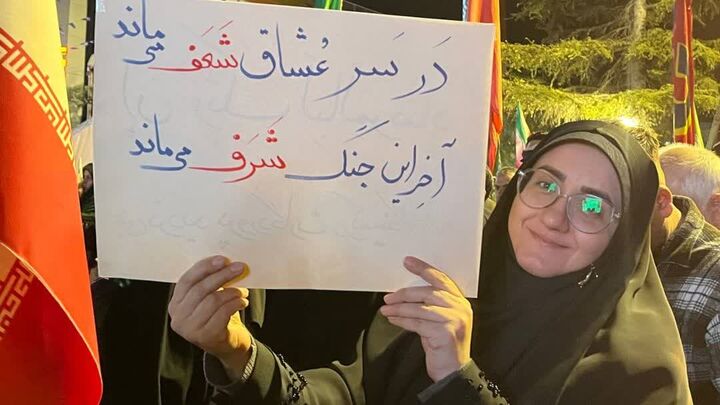 دَر سَر عُشاق شَعَف می‌ماند
آخِر این جَنگ شَرَف می‌ماند